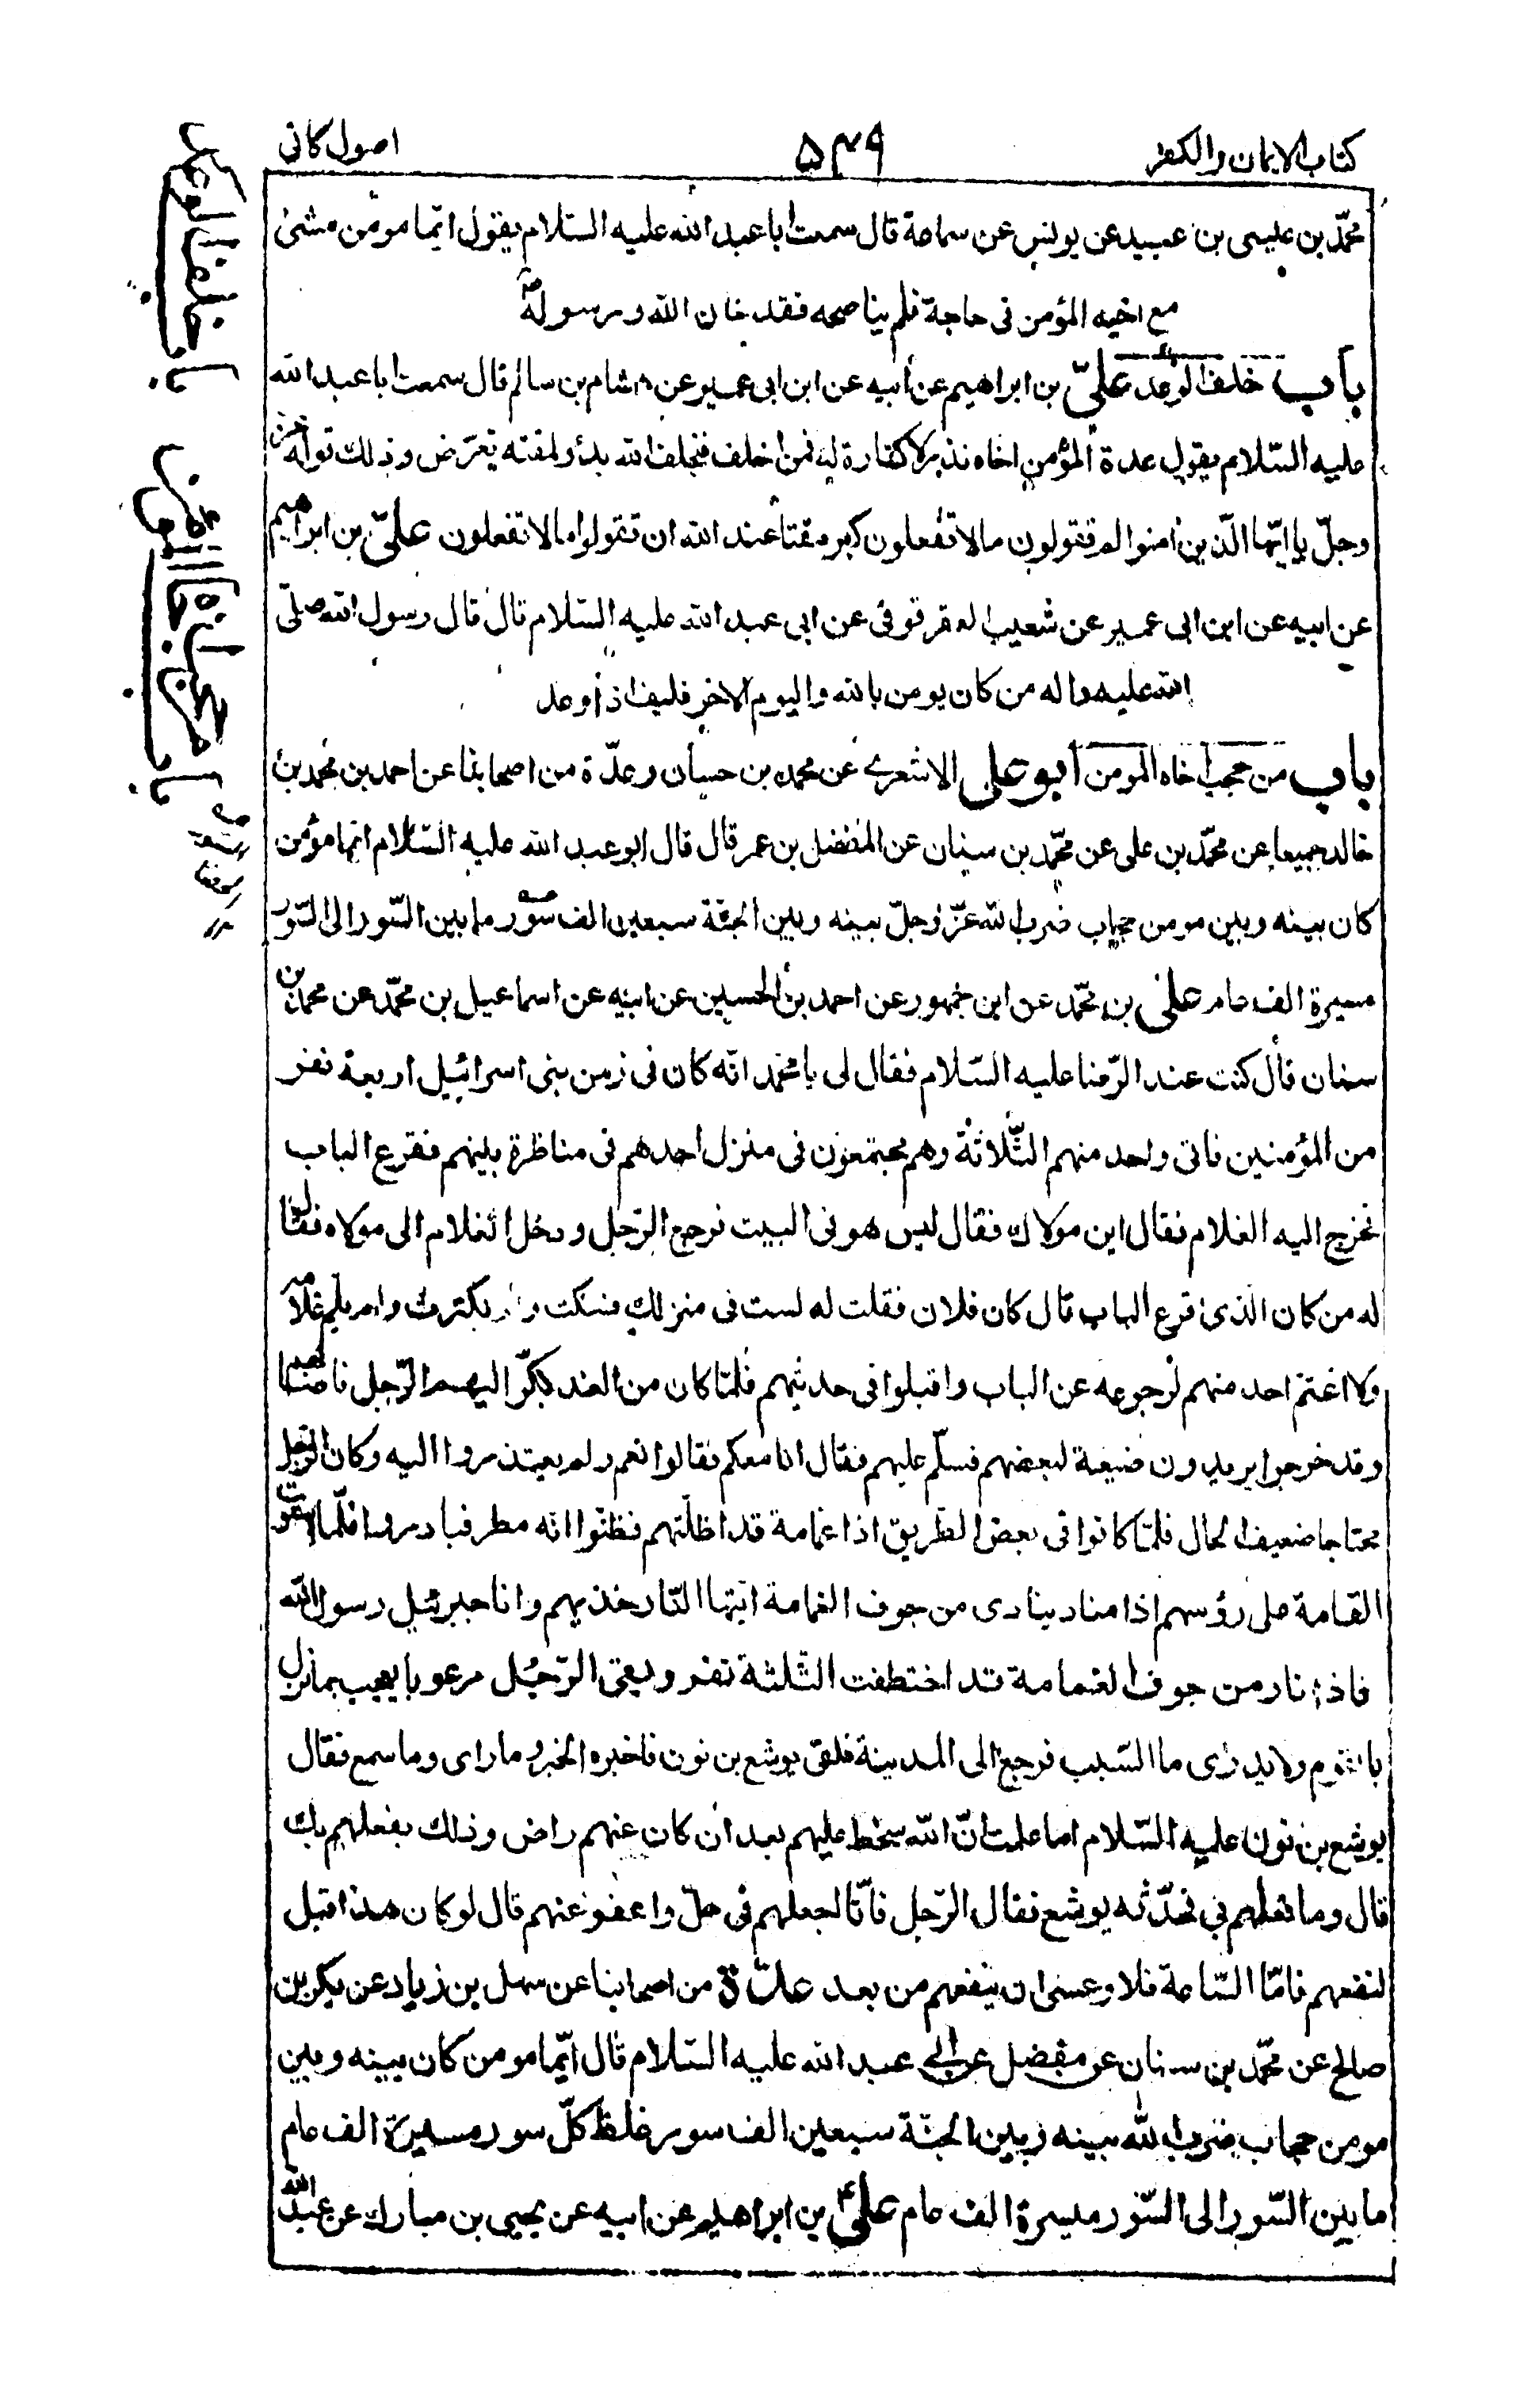 كتاب الايمان والكفر ۵۴۹ اصول كافي
محمّد بن عيسى بن عبيد عن يونس عن سماعة قال سمعت ابا عبد الله عليه السّلام يقول ايّما مؤمن مشىٰ
مع اخيه المؤمن فى حاجة فلم يناصحه فقد خان الله ورسوله
باب خلف الوعد علىّ بن ابراهيم عن ابيه عن ابن ابى عمير عن هشام بن سالم قال سمعت ابا عبد الله
عليه السّلام يقول عدة المؤمن اخاه نذر لا كفارة له فمن اخلف فبخلف الله بدأ ولمقته تعرّض وذلك قوله عز
وجلّ يا ايّها الّذين امنوا لم تقولون ما لا تفعلون كبر مقتا عند الله ان تقولوا ما لا تفعلون علىّ بن ابراهيم
عن ابيه عن ابن ابى عمير عن شعيب العقرقوفى عن ابى عبد الله عليه السّلام قال قال رسول الله صلّى
الله عليه واله من كان يومن بالله واليوم الاخر فليف اذا وعد
باب من حجب اخاه المومن ابو على الاشعرى عن محمد بن حسان وعدّة من اصحابنا عن احمد بن محمد بن
خالد جميعا عن محمّد بن على عن محمّد بن سنان عن المفضل بن عمر قال قال ابو عبد الله عليه السّلام ايما مؤمن
كان بينه وبين مومن حجاب ضرب الله عزّ وجلّ بينه وبين الجنّة سبعين الف سور ما بين السّور الى السّور
مسيرة الف عام على بن محمّد عن ابن جمهور عن احمد بن الحسين عن ابيه عن اسماعيل بن محمّد عن محمد بن
سنان قال كنت عند الرّضا عليه السّلام فقال لى يا محمد انّه كان فى زمن بنى اسرائيل اربعة نفر
من المؤمنين فاتى واحد منهم الثّلاثة وهم مجتمعون فى منزل احدهم فى مناظرة بينهم فقرع الباب
فخرج اليه الغلام فقال اين مولاك فقال ليس هو فى البيت فرجع الرّجل ودخل الغلام الى مولاه فقال
له من كان الذى قرع الباب قال كان فلان فقلت له لست فى منزلك فسكت ولم يكترث ولم يلم غلامه
ولا اغتم احد منهم لرجوعه عن الباب واقبلوا فى حديثهم فلمّا كان من الغد بكّر اليهم الرّجل فاصابهم
وقد خرجوا يريدون ضيعة لبعضهم فسلّم عليهم فقال انا معكم فقالوا نعم ولم يعتذروا اليه وكان الرّجل
محتاجا ضعيف الحال فلمّا كانوا فى بعض الطّريق اذا غمامة قد اظلّتهم فظنّوا انّه مطر فبادروا فلمّا استوت
الغمامة على رؤسهم اذا مناد ينادى من جوف الغمامة ايّتها النّار خذيهم وانا جبرئيل رسول الله
فاذا نار من جوف الغمامة قد اختطفت الثّلثة نفر وبقى الرّجل مرعوبا يعجب بما نزل
بالقوم ولا يدرى ما السّبب فرجع الى المدينة فلقى يوشع بن نون فاخبره الخبر وما راى وما سمع فقال
يوشع بن نون عليه السّلام اما علمت انّ الله سخط عليهم بعد ان كان عنهم راض وذلك بفعلهم بك
قال وما فعلهم بي فحدّثه يوشع فقال الرّجل فانّا اجعلهم فى حلّ واعفو عنهم قال لو كان هذا قبل
لنفعهم فامّا السّاعة فلا وعسى ان ينفعهم من بعد عدّة من اصحابنا عن سهل بن زياد عن بكر بن
صالح عن محمّد بن سنان عن مفضل عن ابى عبد الله عليه السّلام قال ايّما مومن كان بينه وبين
مومن حجاب ضرب الله بينه وبين الجنّة سبعين الف سور غلظ كلّ سور مسيرة الف عام
ما بين السّور الى السّور مسيرة الف عام على بن ابراهيم عن ابيه عن يحيى بن مبارك عن عبد الله
باب خلف الوعد
باب من حجب اخاه المومن